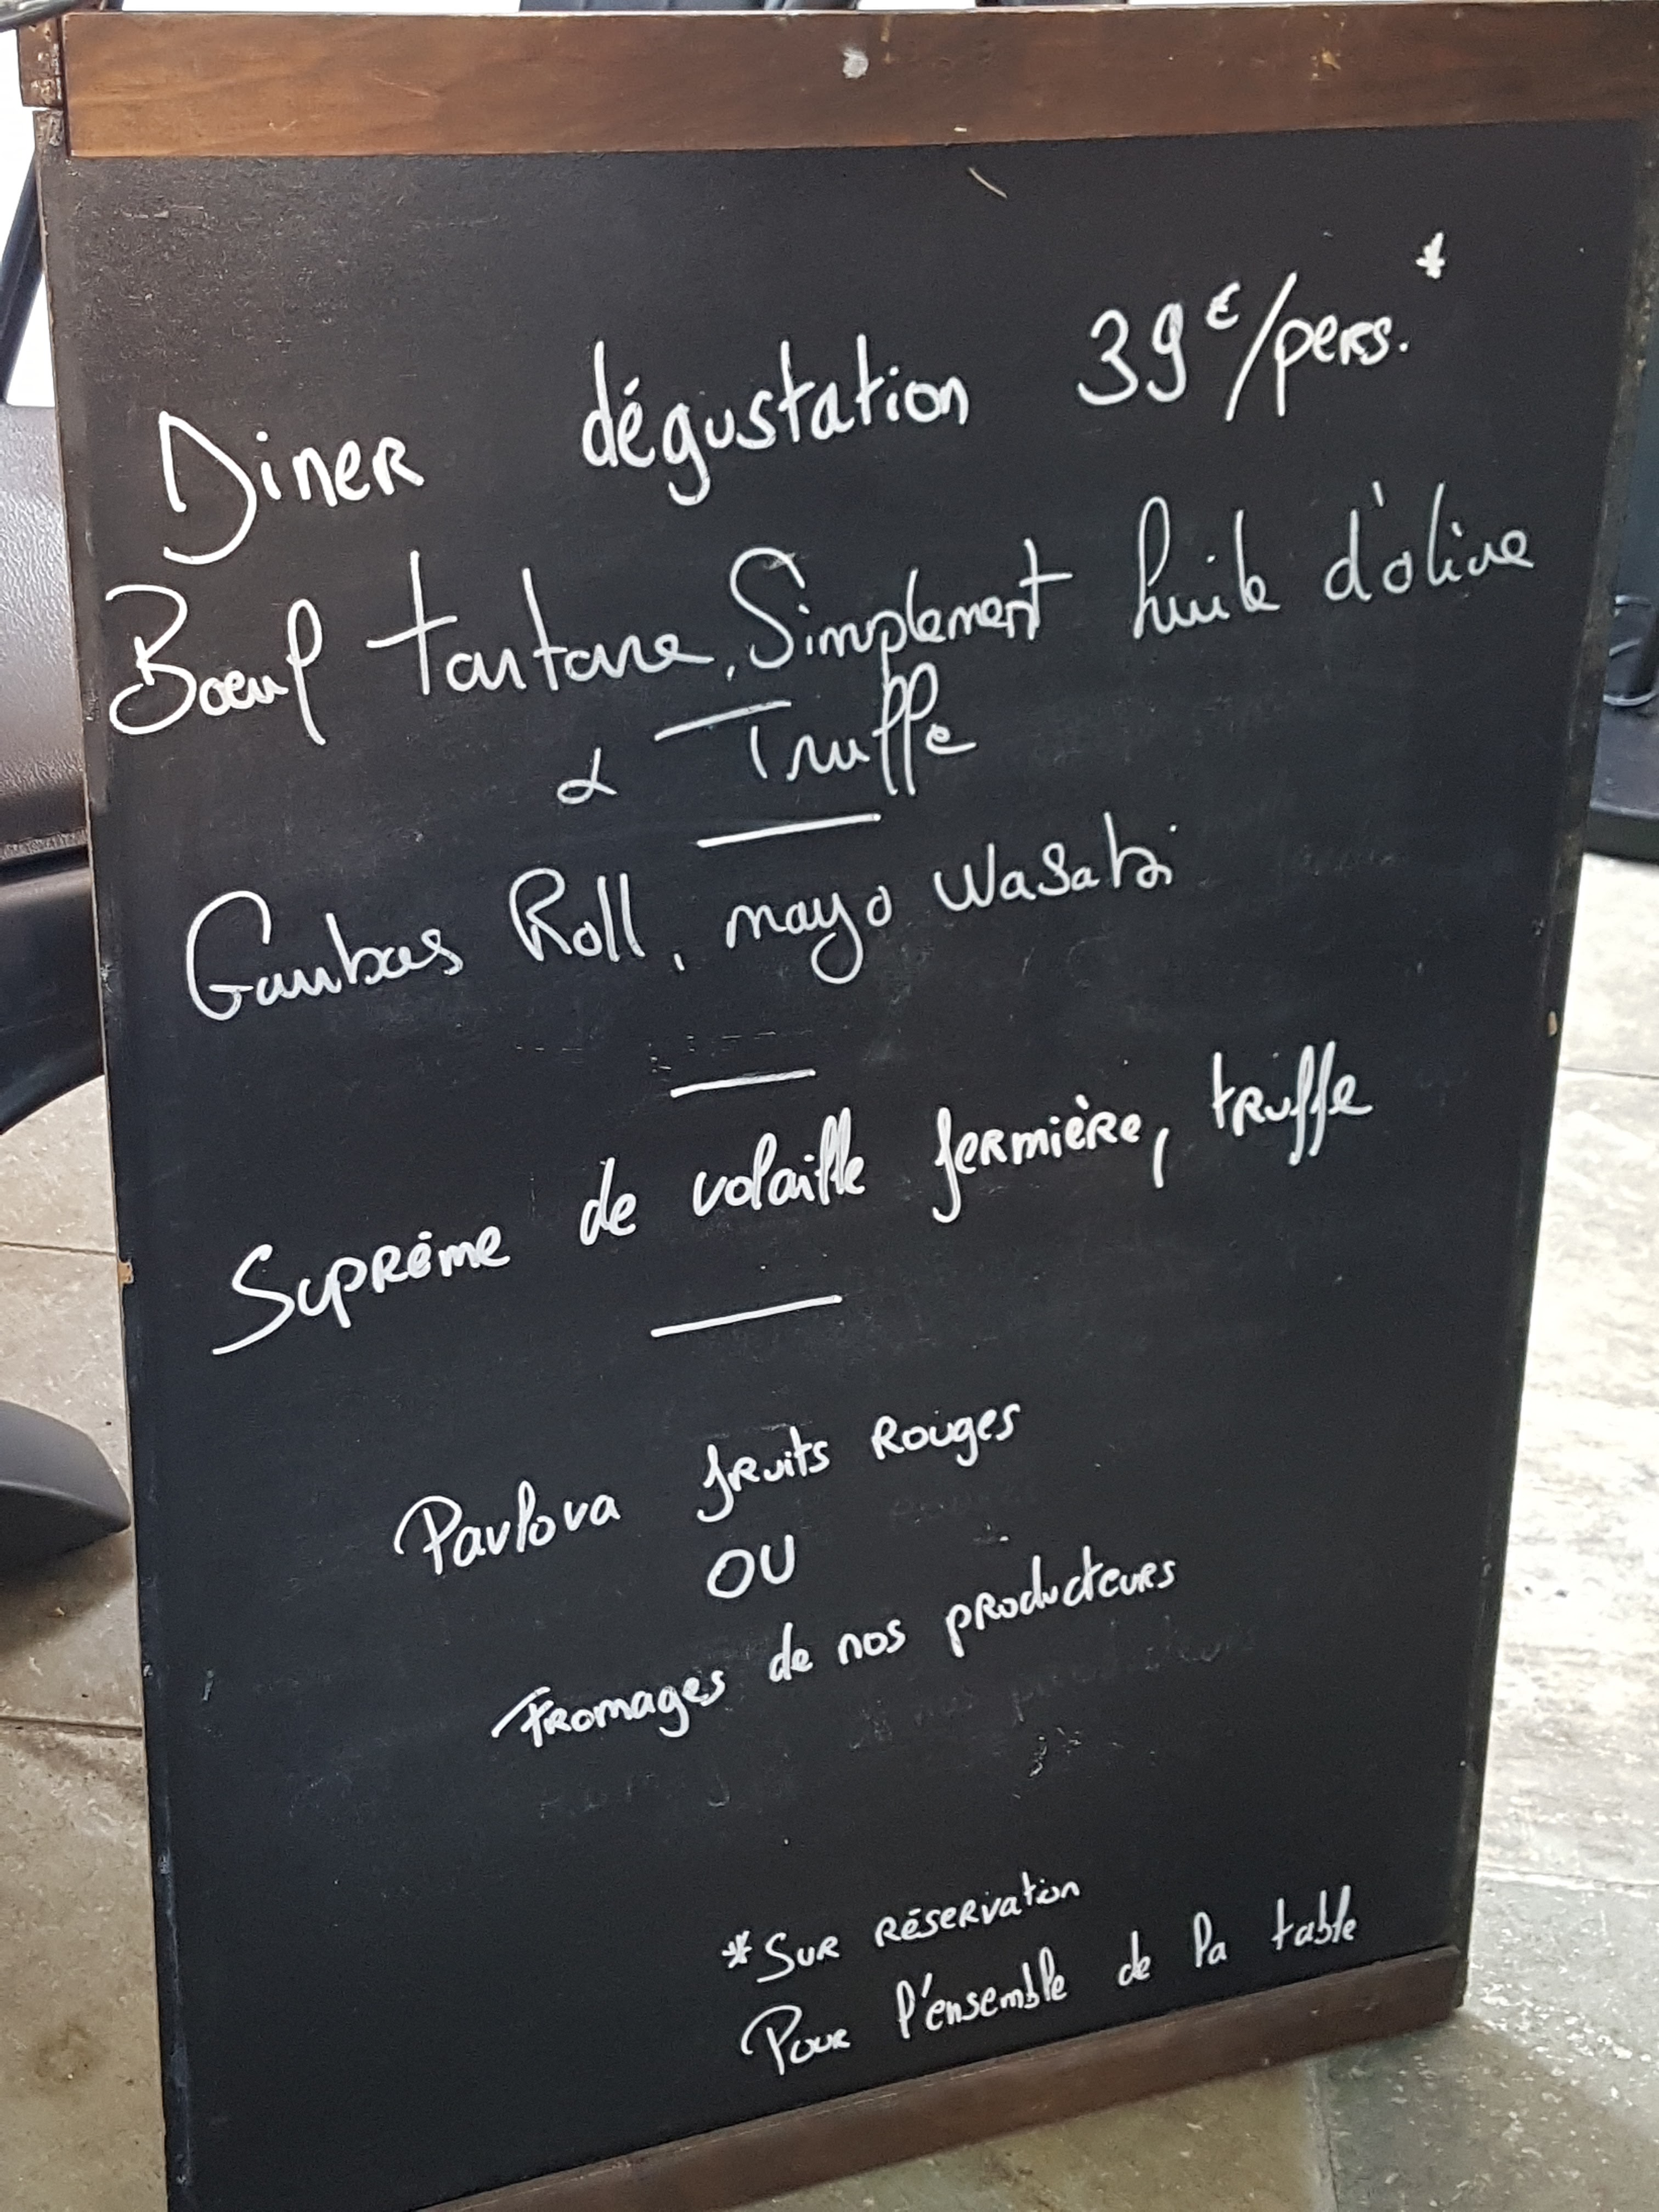 Diner dégustation 39€/pers.*
Boeuf tartare, Simplement huile d'olive
& Truffe
Gambas Roll, mayo Wasabi
Suprême de volaille fermière, truffe
Pavlova fruits Rouges
OU
Fromages de nos producteurs
*Sur réservation
Pour l'ensemble de la table